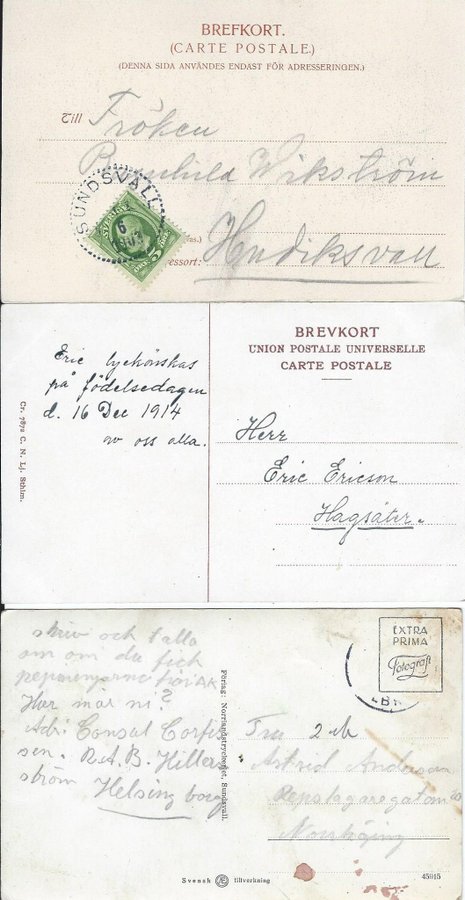 BREFKORT.
(CARTE POSTALE.)
(DENNA SIDA ANVÄNDES ENDAST FÖR ADRESSERINGEN.)
Till Fröken
Wikström
SUNDSVALL
6
SVERIGE
5
Hudiksvall
Eric lyckönskas
på födelsedagen
d. 16 Dec 1914
av oss alla.
Cr. 7872 C. N. Lj. Sthlm.
BREVKORT
UNION POSTALE UNIVERSELLE
CARTE POSTALE
Herr
Eric Ericson
Hagsäter.
skriv och talla
om om du fick
från
Hur mår ni?
Adr. Consul Corfit
sen. R.A.B. Hiller
ström Helsingborg
Förlag: Norrlandstryckeriet, Sundsvall.
EXTRA
PRIMA
Fotografi
Fru
Astrid Anderson
Repslagaregatan
Norrköping
Svensk tillverkning
45915